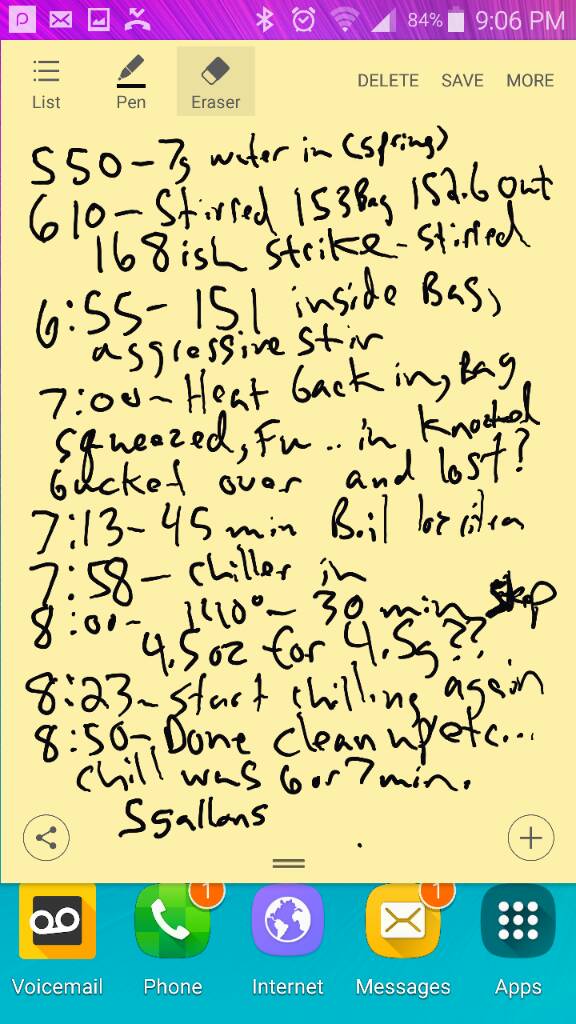 84% 9:06 PM
List Pen Eraser DELETE SAVE MORE
550-7g water in (spring)
610- Stirred 153 Bag 152.6 out
168 ish strike-stirred
6:55- 151 inside Bag,
aggressive stir
7:00- Heat back in, Bag
squeezed, Fu... in knocked
bucket over and lost?
7:13-45 min Boil
7:58- chiller in
8:00- 30 min
4.5oz for 4.5g??
8:23- start chilling again
8:50- Done clean up etc...
chill was 6 or 7 min.
5gallons
1 1
Voicemail Phone Internet Messages Apps